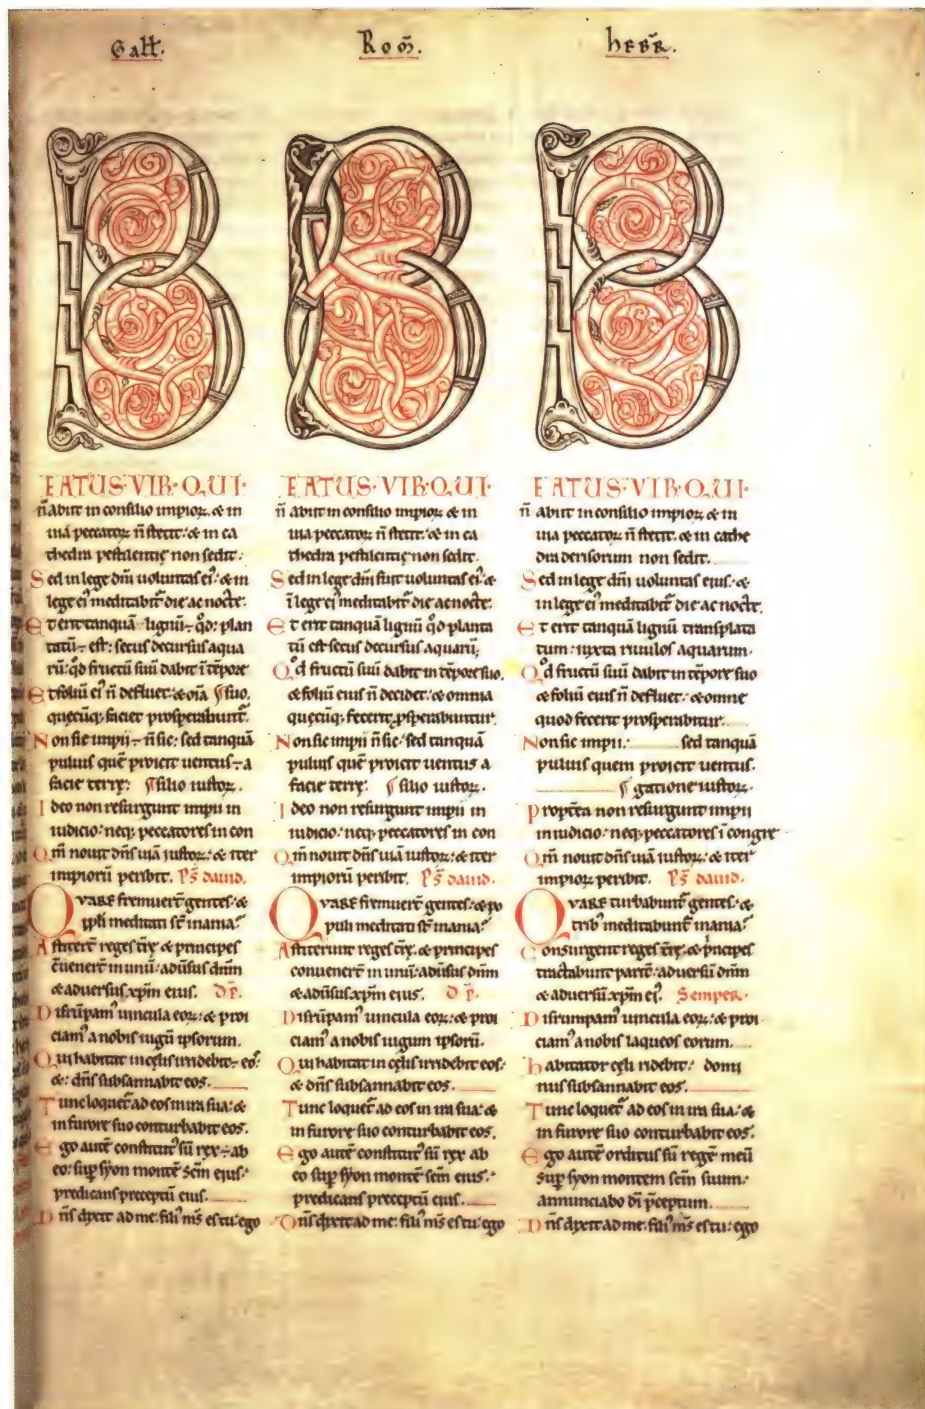 Gall.
Rom̄.
hebr̄.
B
EATUS·VIR·QUI·
n̄ abiit in consilio impioꝝ. & in
uia peccatoꝝ n̄ stetit: & in ca
thedra pestilentię non sedit:
Sed in lege dn̄i uoluntas ei᾽: & in
lege ei᾽ meditabit᷑ die ac nocte.
Et erit tanquā lignū÷ qd̄: plan
tatū÷ est: secus decursus aqua
rū: qd̄ fructū suū dabit ī tēpore
Et foliū ei᾽ n̄ defluet: & om̄ia ¶ suo.
quęcūq; faciet prosperabunt᷑.
Non sic impii÷ n̄ sic: sed tanquā
puluis quē proicit uentus÷ a
facie terrę: ¶ silio iustoꝝ.
Ideo non resurgunt impii in
iudicio: neq; peccatores in con
Qm̄ nouit dn̄s uiā iustoꝝ: & iter
impiorū peribit. Ps̄ dauid.
Quare fremuer̄t gentes: &
ppl̄i meditati st̄ inania?
Astiter̄t reges t̄rę & principes
c̄uener̄t in unū: adūsus dn̄m
& adversus xp̄m eius. D P̄.
Disrūpam᾽ uincula eoꝝ: & proi
ciam᾽ a nobis iugū ipsorum.
Qui habitat in cęlis irridebit÷ eo᾽
&: dn̄s subsannabit eos.
Tunc loquet᷑ ad eos in ira sua: &
in furore suo conturbabit eos.
Ego autē constitut᾽ sū rex÷ ab
eo: sup̱ syon montē sc̄m eius:
predicans preceptū eius.
Dn̄s dixit ad me: fili᾽ m̄s es tu: ego
B
EATUS·VIR·QUI·
n̄ abiit in consilio impioꝝ. & in
uia peccatoꝝ n̄ stetit: & in ca
thedra pestilentię non sedit.
Sed in lege dn̄i fuit uoluntas ei᾽: &
ī lege ei᾽ meditabit᷑ die ac nocte.
Et erit tanquā lignū qd̄ planta
tū est secus decursus aquarū;
Qd̄ fructū suū dabit in tēpore suo.
& foliū eius n̄ decidet: & omnia
quęcūq; fecerit ꝓsperabuntur.
Non sic impii n̄ sic: sed tanquā
puluis quē proicit uentus a
facie terrę: ¶ silio iustoꝝ.
Ideo non resurgunt impii in
iudicio: neq; peccatores in con
Qm̄ nouit dn̄s uiā iustoꝝ: & iter
impiorū peribit. Ps̄ dauid.
Quare fremuer̄t gentes: & po
puli meditati st̄ inania?
Astiterunt reges t̄rę: & principes
convenert̄ in unū: adūsus dn̄m
& adūsus xp̄m eius. D P̄.
Disrūpam᾽ uincula eoꝝ: & proi
ciam᾽ a nobis iugum ipsorū.
Qui habitat in cęlis irridebit eos:
& dn̄s subsannabit eos.
Tunc loquet᷑ ad eos in ira sua: &
in furore suo conturbabit eos.
Ego autē constitut᾽ sū rex ab
eo sup̱ syon montē sc̄m eius:
predicans preceptū eius.
Dn̄s dixit ad me: fili᾽ m̄s es tu: ego
B
EATUS·VIR·QUI·
n̄ abiit in consilio impioꝝ & in
uia peccatoꝝ n̄ stetit. & in cathe
dra derisorum non sedit.
Sed in lege dn̄i uoluntas eius: &
in lege ei᾽ meditabit᷑ die ac nocte.
Et erit tanquā lignū transplata
tum: iuxta riuulos aquarum.
Qd̄ fructū suū dabit in tēpore suo
& foliū eius n̄ defluet: & omne
quod fecerit prosperabitur.
Non sic impii: sed tanquā
puluis quem proicit uentus.
¶ gatione iustoꝝ.
Proptea non resurgunt impii
in iudicio: neq; peccatores ī congre
Qm̄ nouit dn̄s uiā iustoꝝ: & iter
impioꝝ peribit. Ps̄ dauid.
Quare turbabunt᷑ gentes: &
trib᾽ meditabunt᷑ inania?
Consurgent reges t̄rę: & p̄ncipes
tractabunt parit̄: adversū dn̄m
& adversū xp̄m ei᾽. Semper.
Disrumpam᾽ uincula eoꝝ: & proi
ciam᾽ a nobis laqueos eorum.
habitator cęli ridebit: domi
nus subsannabit eos.
Tunc loquet᷑ ad eos in ira sua: &
in furore suo conturbabit eos.
Ego autē orditus sū regē meū
sup̱ syon montem sc̄m suum:
annunciabo dī p̄ceptum.
Dn̄s dixit ad me: fili᾽ m̄s es tu: ego